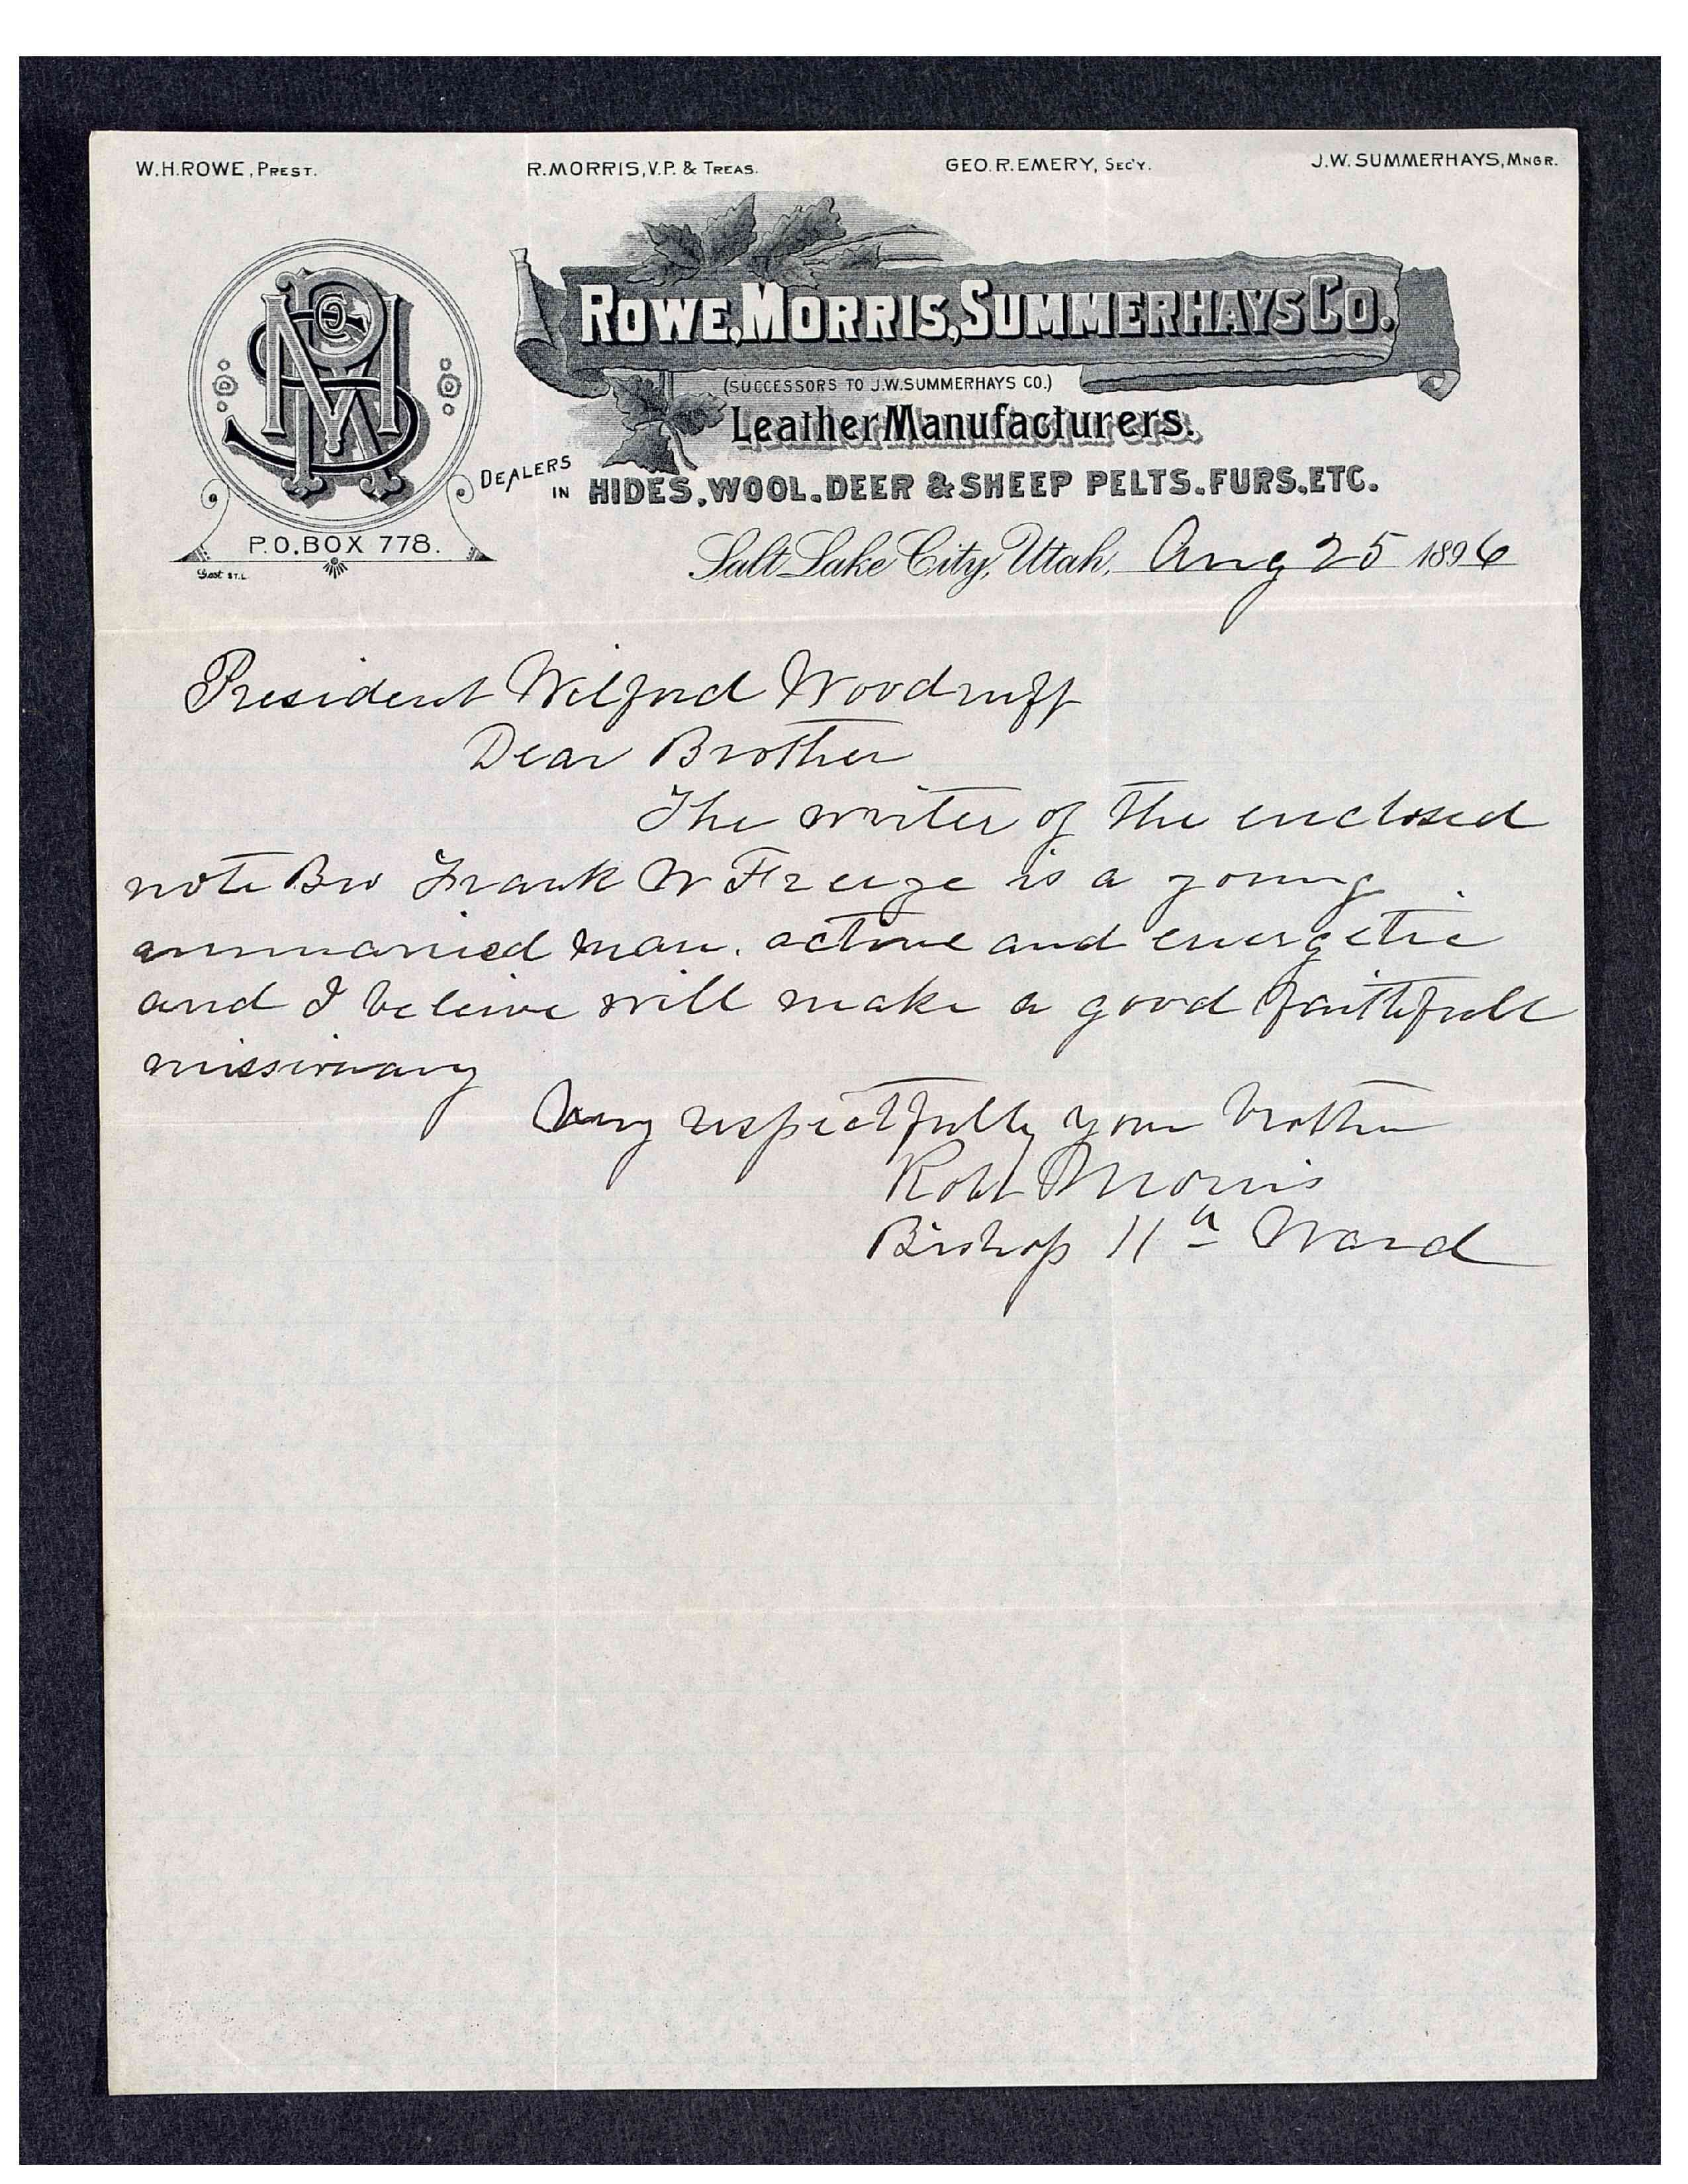 W.H.ROWE, PREST. R.MORRIS, V.P. & TREAS. GEO. R. EMERY, SEC'Y. J.W. SUMMERHAYS, MNGR.
ROWE, MORRIS, SUMMERHAYS CO.
(SUCCESSORS TO J.W. SUMMERHAYS CO.)
Leather Manufacturers.
DEALERS IN HIDES, WOOL, DEER & SHEEP PELTS, FURS, ETC.
P.O. BOX 778.
Salt Lake City, Utah, Aug 25 1896
President Wilford Woodruff
Dear Brother
The writer of the enclosed
note Bro Frank W Freeze is a young
unmarried man. active and energetic
and I beleive will make a good faithfull
missionary
Very respectfully your brother
Robt Morris
Bishop 11th Ward